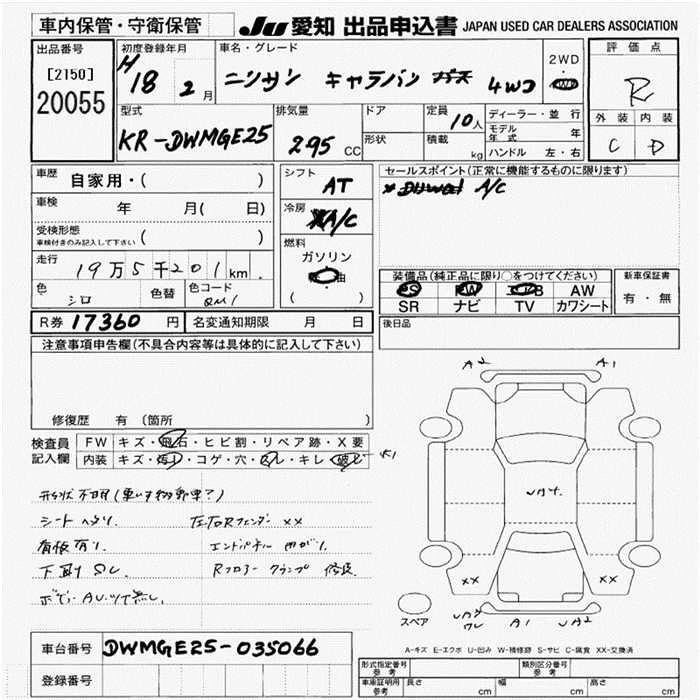 車内保管・守衛保管
JU 愛知 出品申込書 JAPAN USED CAR DEALERS ASSOCIATION
出品番号
[2150]
20055
初度登録年月
H18 2月
車名・グレード
ニッサン キャラバン
4WD
2WD
・
評価点
R
外装 内装
C D
型式
KR-DWMGE25
排気量
295 CC
ドア
形状
定員
10人
積載 kg
ディーラー・並行
モデル年式 年
ハンドル 左・右
車歴
自家用・( )
車検
年 月( 日)
受検形態
車検付きのみ記入して下さい ( )
走行
19万5千201km
色
シロ
色替
色コード
QM1
シフト
AT
冷房
A/C
燃料
ガソリン
( )
セールスポイント(正常に機能するものに限ります)
A/C
装備品(純正品に限り○をつけてください)
PS PW AW
SR ナビ TV カワシート
新車保証書
有・無
R券 17360 円
名変通知期限 月 日
後日品
注意事項申告欄(不具合内容等は具体的に記入して下さい)
修復歴 有 (箇所 )
検査員
記入欄
FW キズ・飛石・ヒビ割・リペア跡・X要
内装 キズ・汚れ・コゲ・穴・スレ・キレ・破レ
シートヘタリ
左右Rフェンダー XX
看板有り
下廻りサビ
A2 A1
UA4.
XX XX
A1 UA2
スペア
A-キズ E-エクボ U-凹み W-補修跡 S-サビ C-腐食 XX-交換済
車台番号 DWMGE25-035066
登録番号
形式指定番号
参考
類別区分番号
参考
車庫証明用
参考
長さ cm 幅 cm 高さ cm